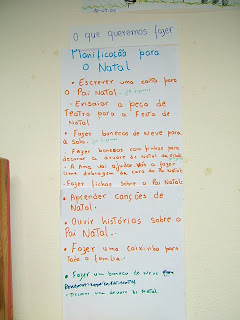 O que queremos fazer
Planificação para
o Natal
• Escrever uma carta para
o Pai Natal.
- Ensaiar a peça de
Teatro para a Festa de
Natal.
• Fazer bonecos de neve para
a sala.
- Fazer bonecos com pinhas para
decorar a árvore de Natal da
- A Ana vai ajudar-nos a fazer
uma dobragem da cara do Pai Natal
- Fazer fichas sobre o Pai Natal
• Aprender canções de
Natal.
• Ouvir histórias sobre o
Pai Natal.
• Fazer uma caixinha para
toda a família.
• Fazer um boneco de neve
- Decorar uma árvore de Natal